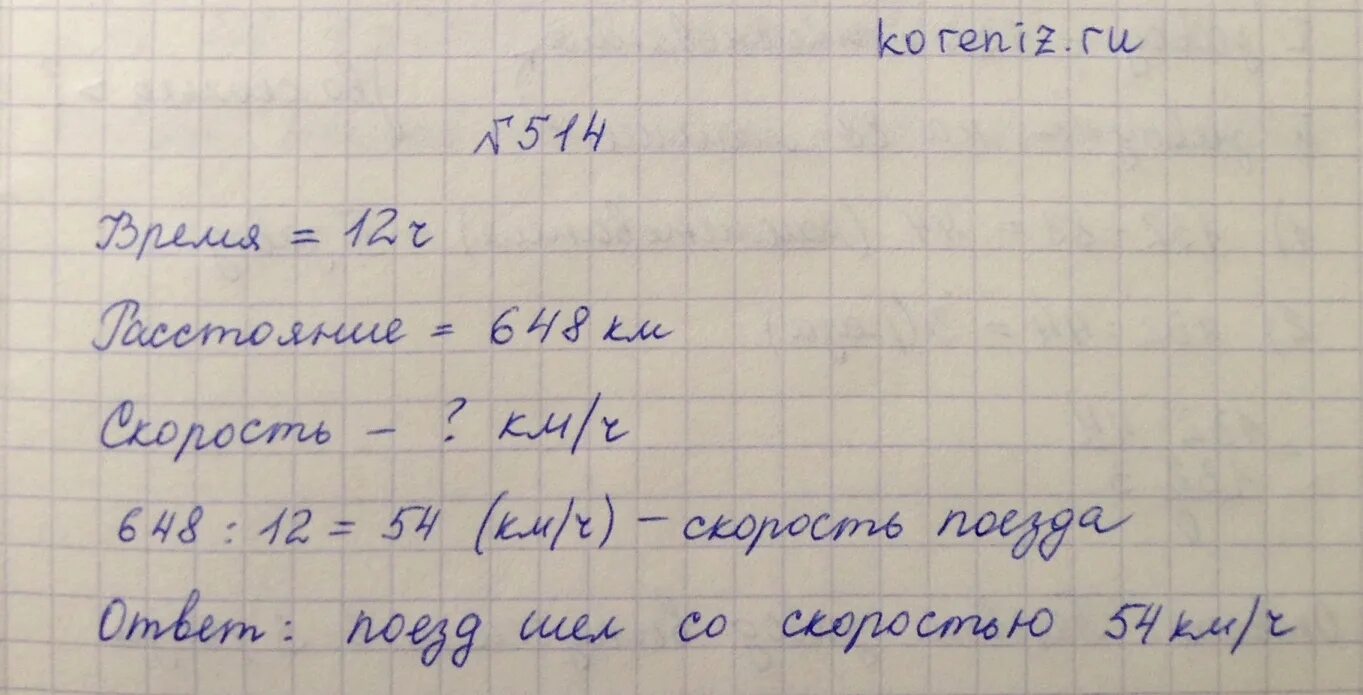 koreniz.ru
№514
Время = 12ч
Расстояние = 648 км
Скорость – ? км/ч
648 : 12 = 54 (км/ч) – скорость поезда
Ответ: поезд шел со скоростью 54 км/ч